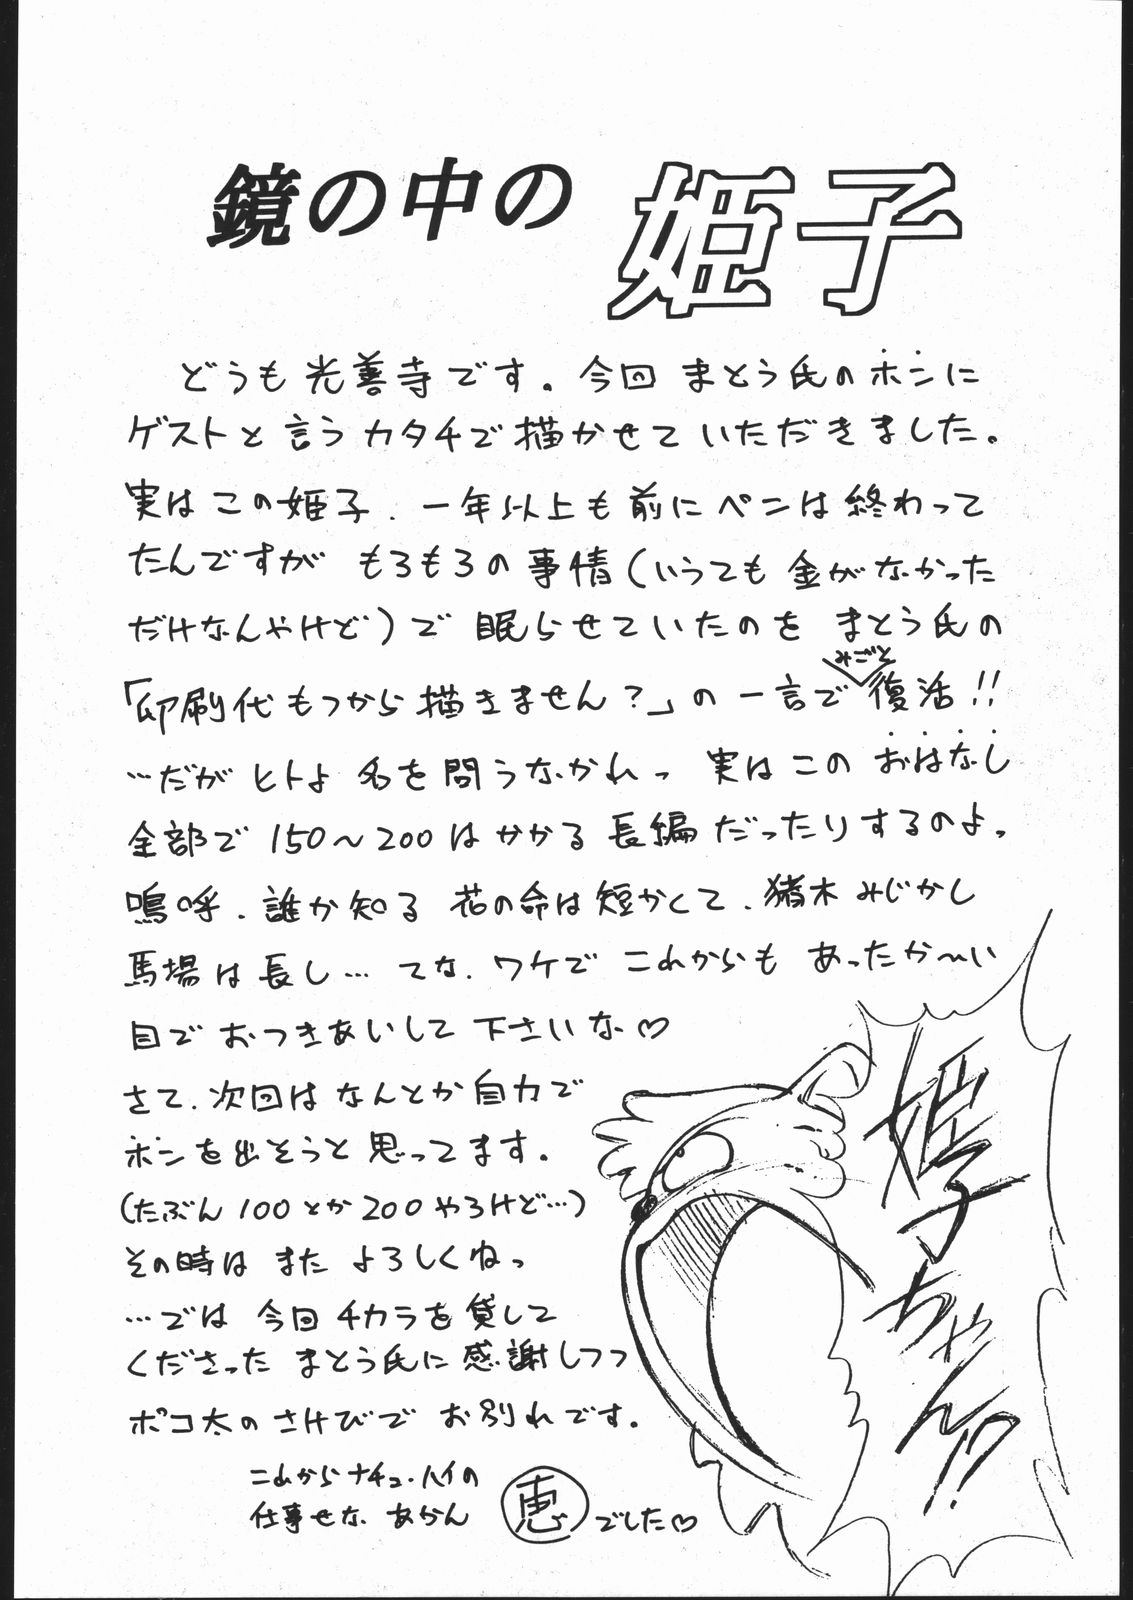 鏡の中の 姫子
どうも光善寺です。今回 まとう氏のホンに
ゲストと言うカタチで描かせていただきました。
実はこの姫子、一年以上も前にペンは終わって
たんですが もろもろの事情(いうても金がなかった
だけなんやけど)で眠らせていたのを まとう氏の
「印刷代もつから描きません?」の一言で みごと 復活!!
…だがヒトよ 名を問うなかれっ 実はこの おはなし
全部で 150〜200はかかる 長編だったりするのよっ
嗚呼、誰か知る 花の命は短かくて、猪木みじかし
馬場は長し…てな、ワケで これからも あったか〜い
目で おつきあいして 下さいな♡
さて、次回は なんとか自力で
ホンを出そうと思ってます。
(たぶん100とか200やろけど…)
その時は また よろしくねっ
…では 今回 チカラを貸して
くださった まとう氏に感謝しつつ
ポコ太の さけびで お別れです。
これから ナチュ・ハイの
仕事せな あかん 恵 でした♡
姫子
ちゃん!?